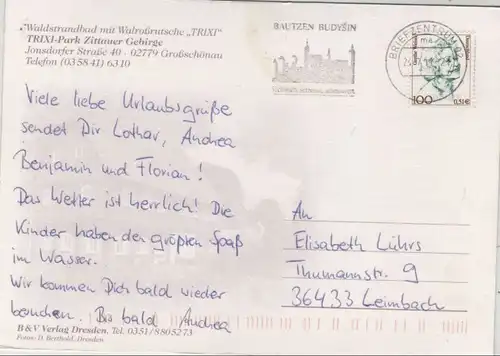 "Waldstrandbad mit Walroßrutsche „TRIXI"
TRIXI-Park Zittauer Gebirge
Jonsdorfer Straße 40 · 02779 Großschönau
Telefon (0 35 8 41) 63 10
BAUTZEN BUDYŠIN
BRIEFZENTRUM
100
0,51€
Viele liebe Urlaubsgrüße
sendet Dir Lothar, Andrea
Benjamin und Florian!
Das Wetter ist herrlich! Die
Kinder haben den größten Spaß
im Wasser.
Wir kommen Dich bald wieder
besuchen. Bis bald Andrea
An
Elisabeth Lührs
Thumannstr. 9
36433 Leimbach
B & V Verlag Dresden, Tel. 0351/8805273
Fotos: D. Berthold, Dresden